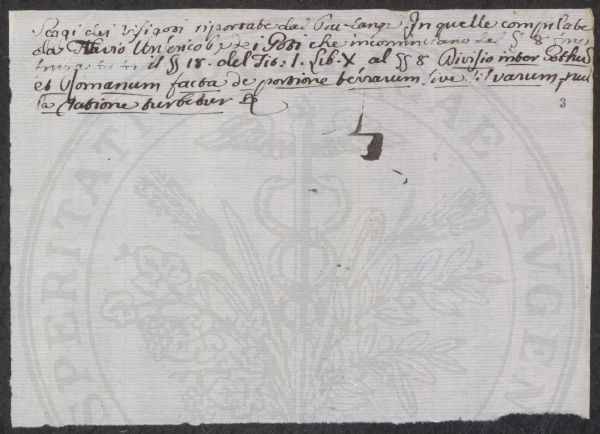 Leggi dei Visigoti riportate dal Boulangr In quelle compilate
da Flavio e i Goti che incominciano dal § 8
il §§ 18. del Tit. 1. Lib. X al §§ 8 Divisio inter Gothũ
et Romanum facta de portione terrarum, sive silvarum, nul
la ratione turbetur &
3
SPERITATI AE AUGEN